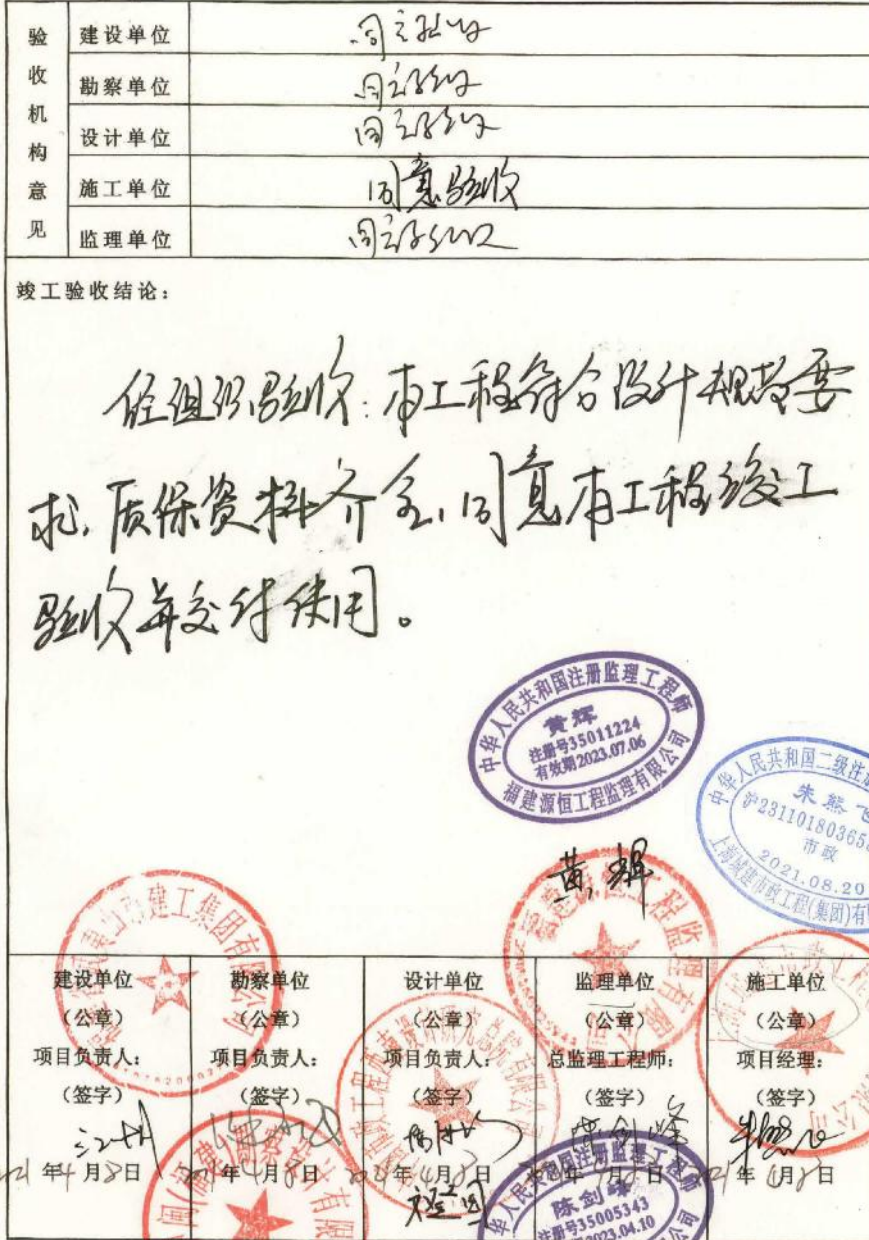 验收机构意见
建设单位 同意验收
勘察单位 同意验收
设计单位 同意验收
施工单位 同意验收
监理单位 同意验收
竣工验收结论：
经组织验收：本工程符合设计规范要
求，质保资料齐全，同意本工程竣工
验收并交付使用。
中华人民共和国注册监理工程师
黄辉
注册号35011224
有效期2023.07.06
福建源恒工程监理有限公司
中华人民共和国二级注
朱熊飞
沪23110180365
市政
2021.08.20
上海城建市政工程(集团)有
黄辉
建设单位 勘察单位 设计单位 监理单位 施工单位
（公章） （公章） （公章） （公章） （公章）
项目负责人： 项目负责人： 项目负责人： 总监理工程师： 项目经理：
（签字） （签字） （签字） （签字） （签字）
陈剑峰
年4月8日 年4月8日 年4月8日 年 月 日 年4月8日
华人民共和国注册监理工程师
陈剑峰
注册号35005343
2023.04.10